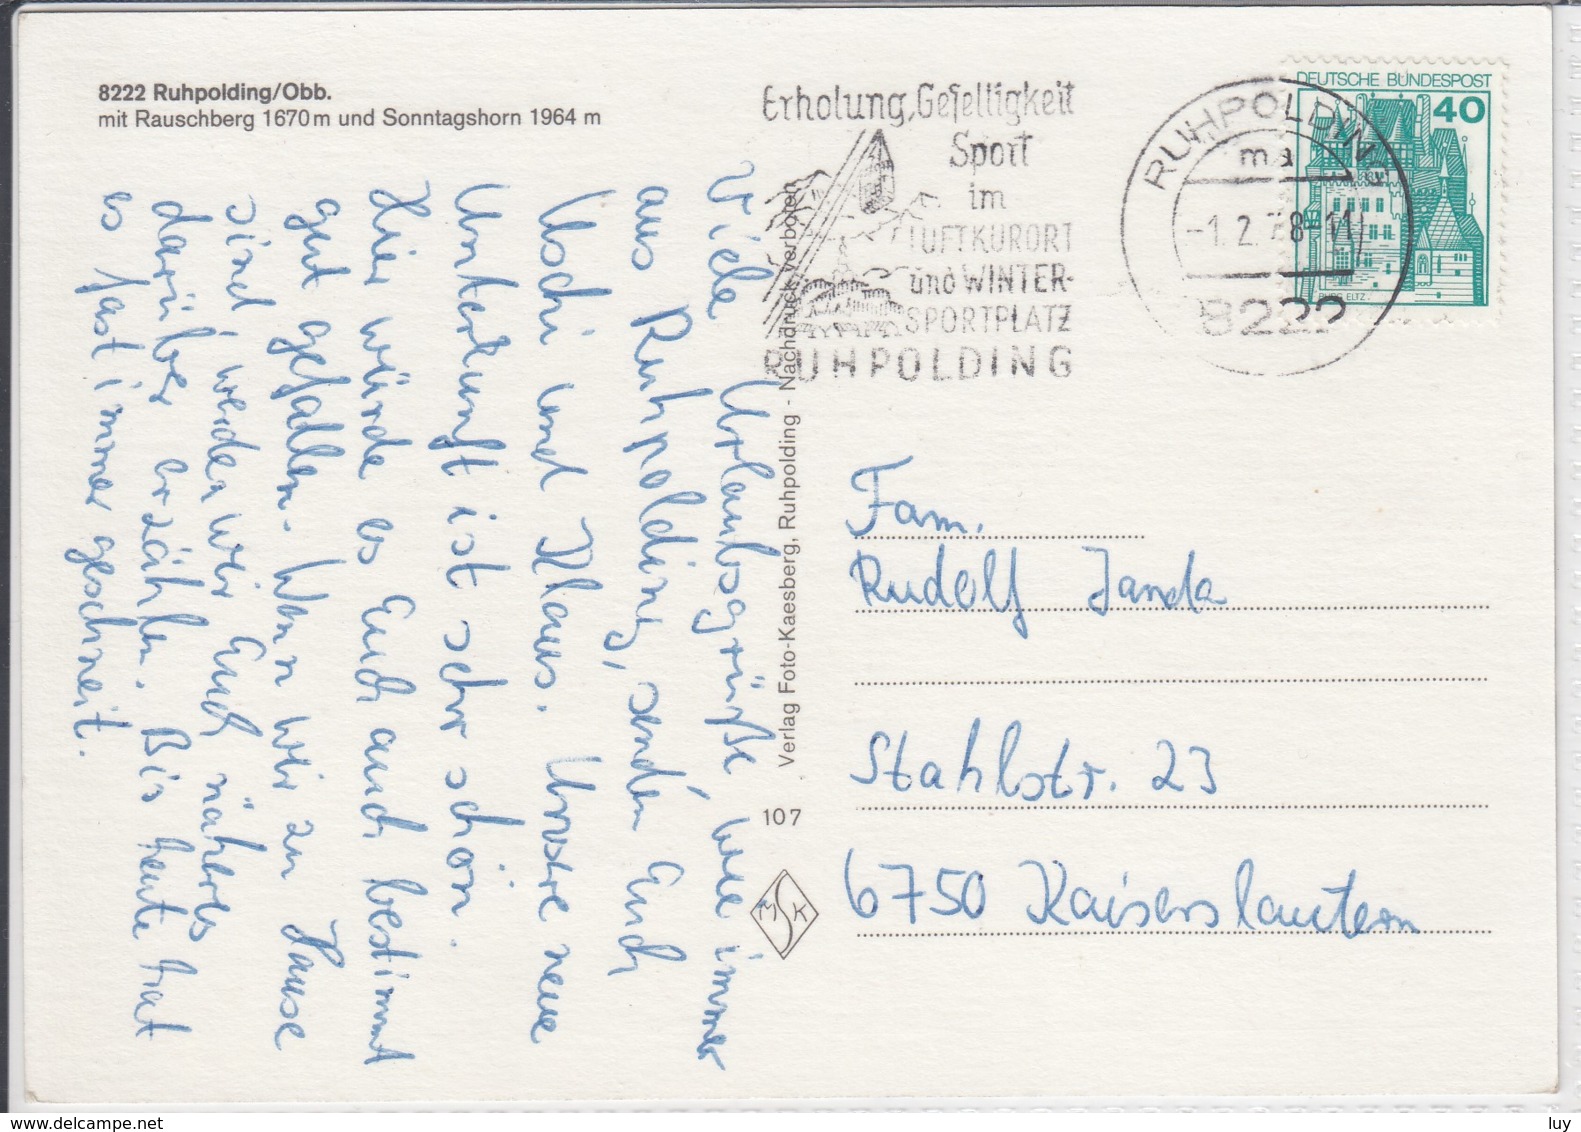 8222 Ruhpolding/Obb.
mit Rauschberg 1670 m und Sonntagshorn 1964 m
Erholung, Geselligkeit
Sport
im
LUFTKURORT
und WINTER-
SPORTPLATZ
RUHPOLDING
RUHPOLDING
ma
-1.2.78-11
8222
DEUTSCHE BUNDESPOST
40
BURG ELTZ
Viele Urlaubsgrüße, wie immer
aus Ruhpolding, senden Euch
Uschi und Klaus. Unsere neue
Unterkunft ist sehr schön.
Hier würde es Euch auch bestimmt
gut gefallen. Wenn wir zu Hause
sind, werden wir Euch näheres
darüber erzählen. Bis heute hat
es fast immer geschneit.
Verlag Foto-Kaesberg, Ruhpolding - Nachdruck verboten
107
MSK
Fam.
Rudolf Janda
Stahlstr. 23
6750 Kaiserslautern
luy
www.delcampe.net